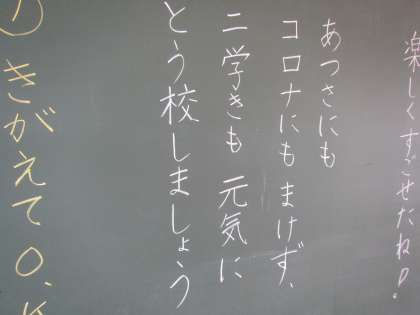 楽しくすごせたね♪。
あつさにも
コロナにもまけず、
二学きも元気に
とう校しましょう
きがえてO.K